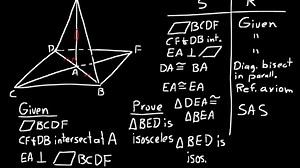 S R
▱BCDF Given
CF&DB int. "
EA ⊥ ▱ "
DA ≅ BA Diag. bisect
in parall.
EA ≅ EA Ref. axiom
∆DEA ≅
∆BEA SAS
∆BED is
isos.
D
F
A
C
B
Given
▱BCDF
CF&DB intersect at A
EA ⊥ ▱BCDF
Prove
∆BED is
isosceles